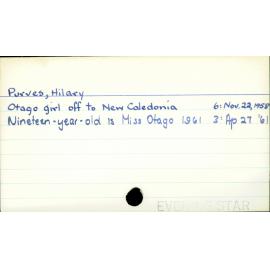 Purves, Hilary
Otago girl off to New Caledonia 6: Nov. 22, 1958
Nineteen-year-old is Miss Otago 1961 3: Ap 27 '61
EVENING STAR